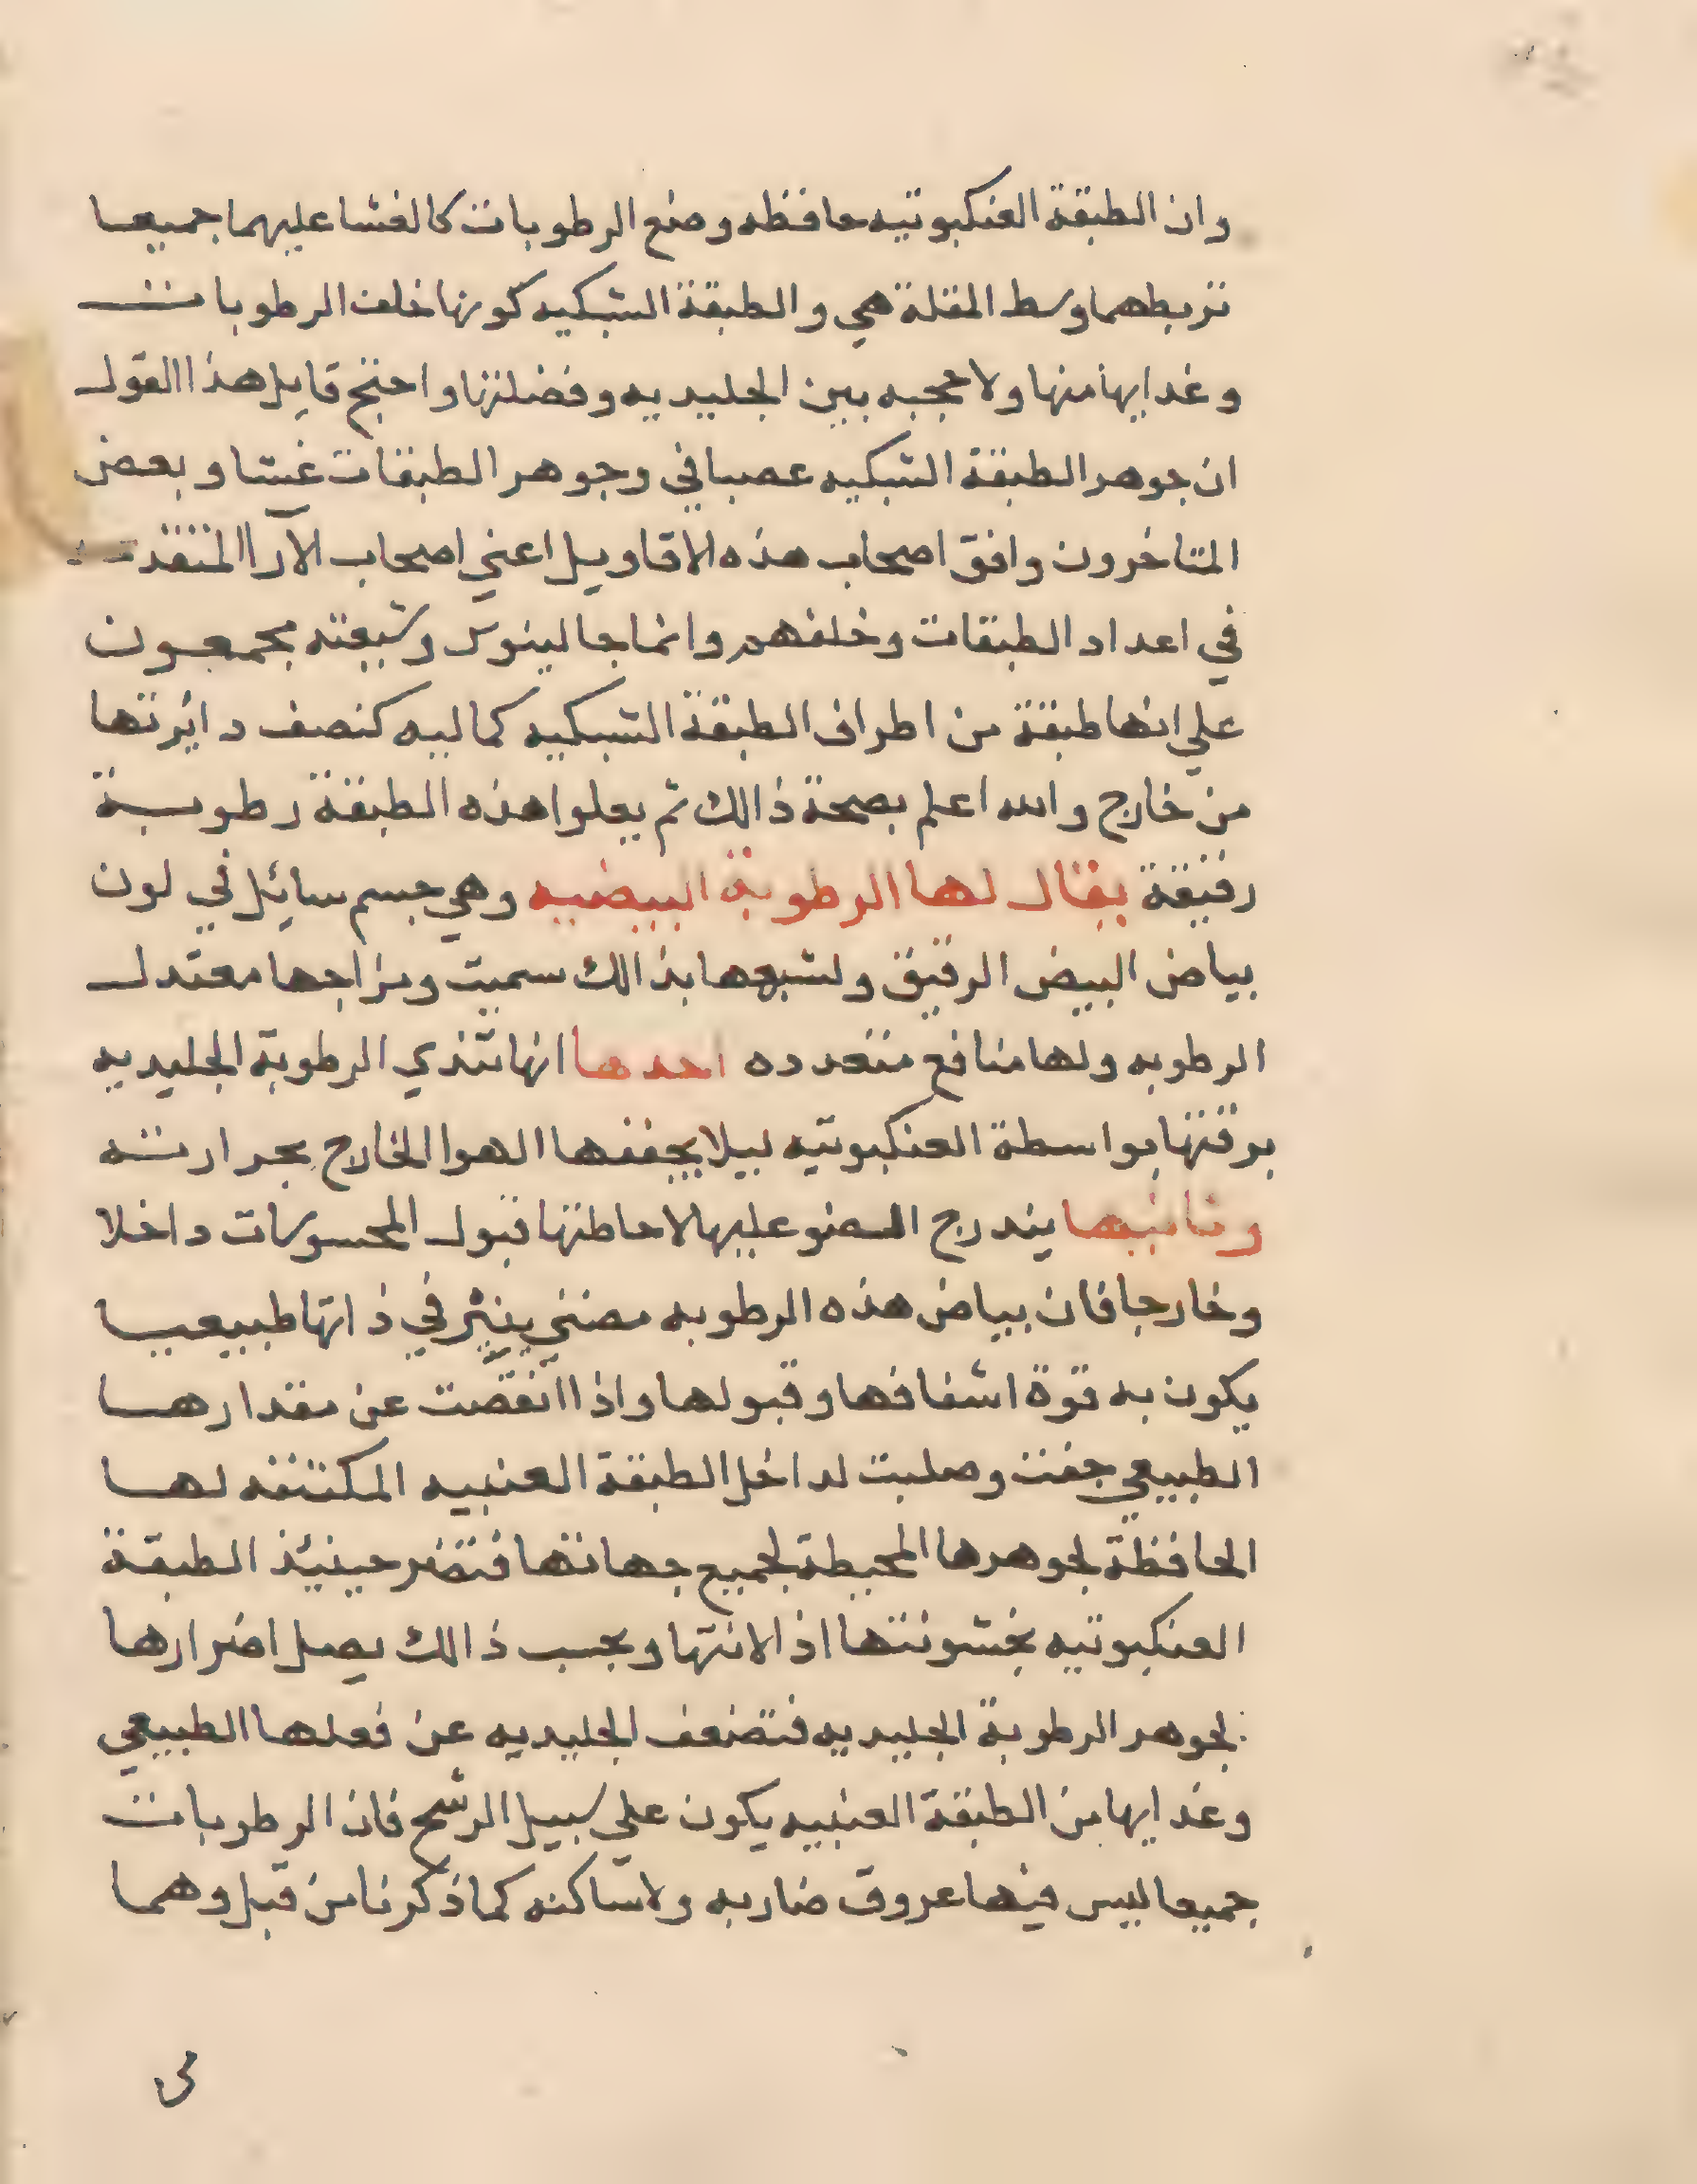 وان الطبقة العنكبوتيه حافظه وضع الرطوبات كالغشا عليهما جميعا
تربطهما وسط المقلة هي والطبقة الشبكيه كونها خلف الرطوبات
وغدايها منها ولا حجبه بين الجليديه وفضلتها واحتج قايل هذا القول
ان جوهر الطبقة الشبكيه عصباني وجوهر الطبقات غشا وبعض
المتاخرون وافق اصحاب هذه الاقاويل اعني اصحاب الآرا المتقدمة
في اعداد الطبقات وخلفهم وانما جالينوس وشيعته مجمعون
علي انها طبقة من اطراف الطبقة الشبكيه كماليه كنصف دائرتها
من خارج والله اعلم بصحة ذالك ثم يعلوا هذه الطبقة رطوبة
رقيقة يقال لها الرطوبة البيضيه وهي جسم سائل في لون
بياض البيض الرقيق ولشبهها بذالك سميت ومزاجها معتدل
الرطوبه ولها منافع متعدده احدها انها تندي الرطوبة الجليديه
برقتها بواسطة العنكبوتيه ليلا يجففها الهوا الخارج بحرارته
وثانيها يندرج الضو عليها لاحاطتها قبول المحسوسات داخلا
وخارجا فان بياض هذه الرطوبه مضئي ينير في ذاتها طبيعيا
يكون به قوة اشفافها وقبولها واذا انقصت عن مقدارها
الطبيعي جفت وصلبت لداخل الطبقة العنبيه المكتنفه لها
الحافظة لجوهرها المحيطة لجميع جهاتها فتضر حينيئذ الطبقة
العنكبوتيه بخشونتها اذ الانتها وبحسب ذالك يصل اضرارها
لجوهر الرطوبة الجليديه فتضعف الجليديه عن فعلها الطبيعي
وغدايها من الطبقة العنبيه يكون علي سبيل الرشح فان الرطوبات
جميعا ليس فيها عروق ضاربه ولا ساكنه كما ذكرنا من قبل وهما